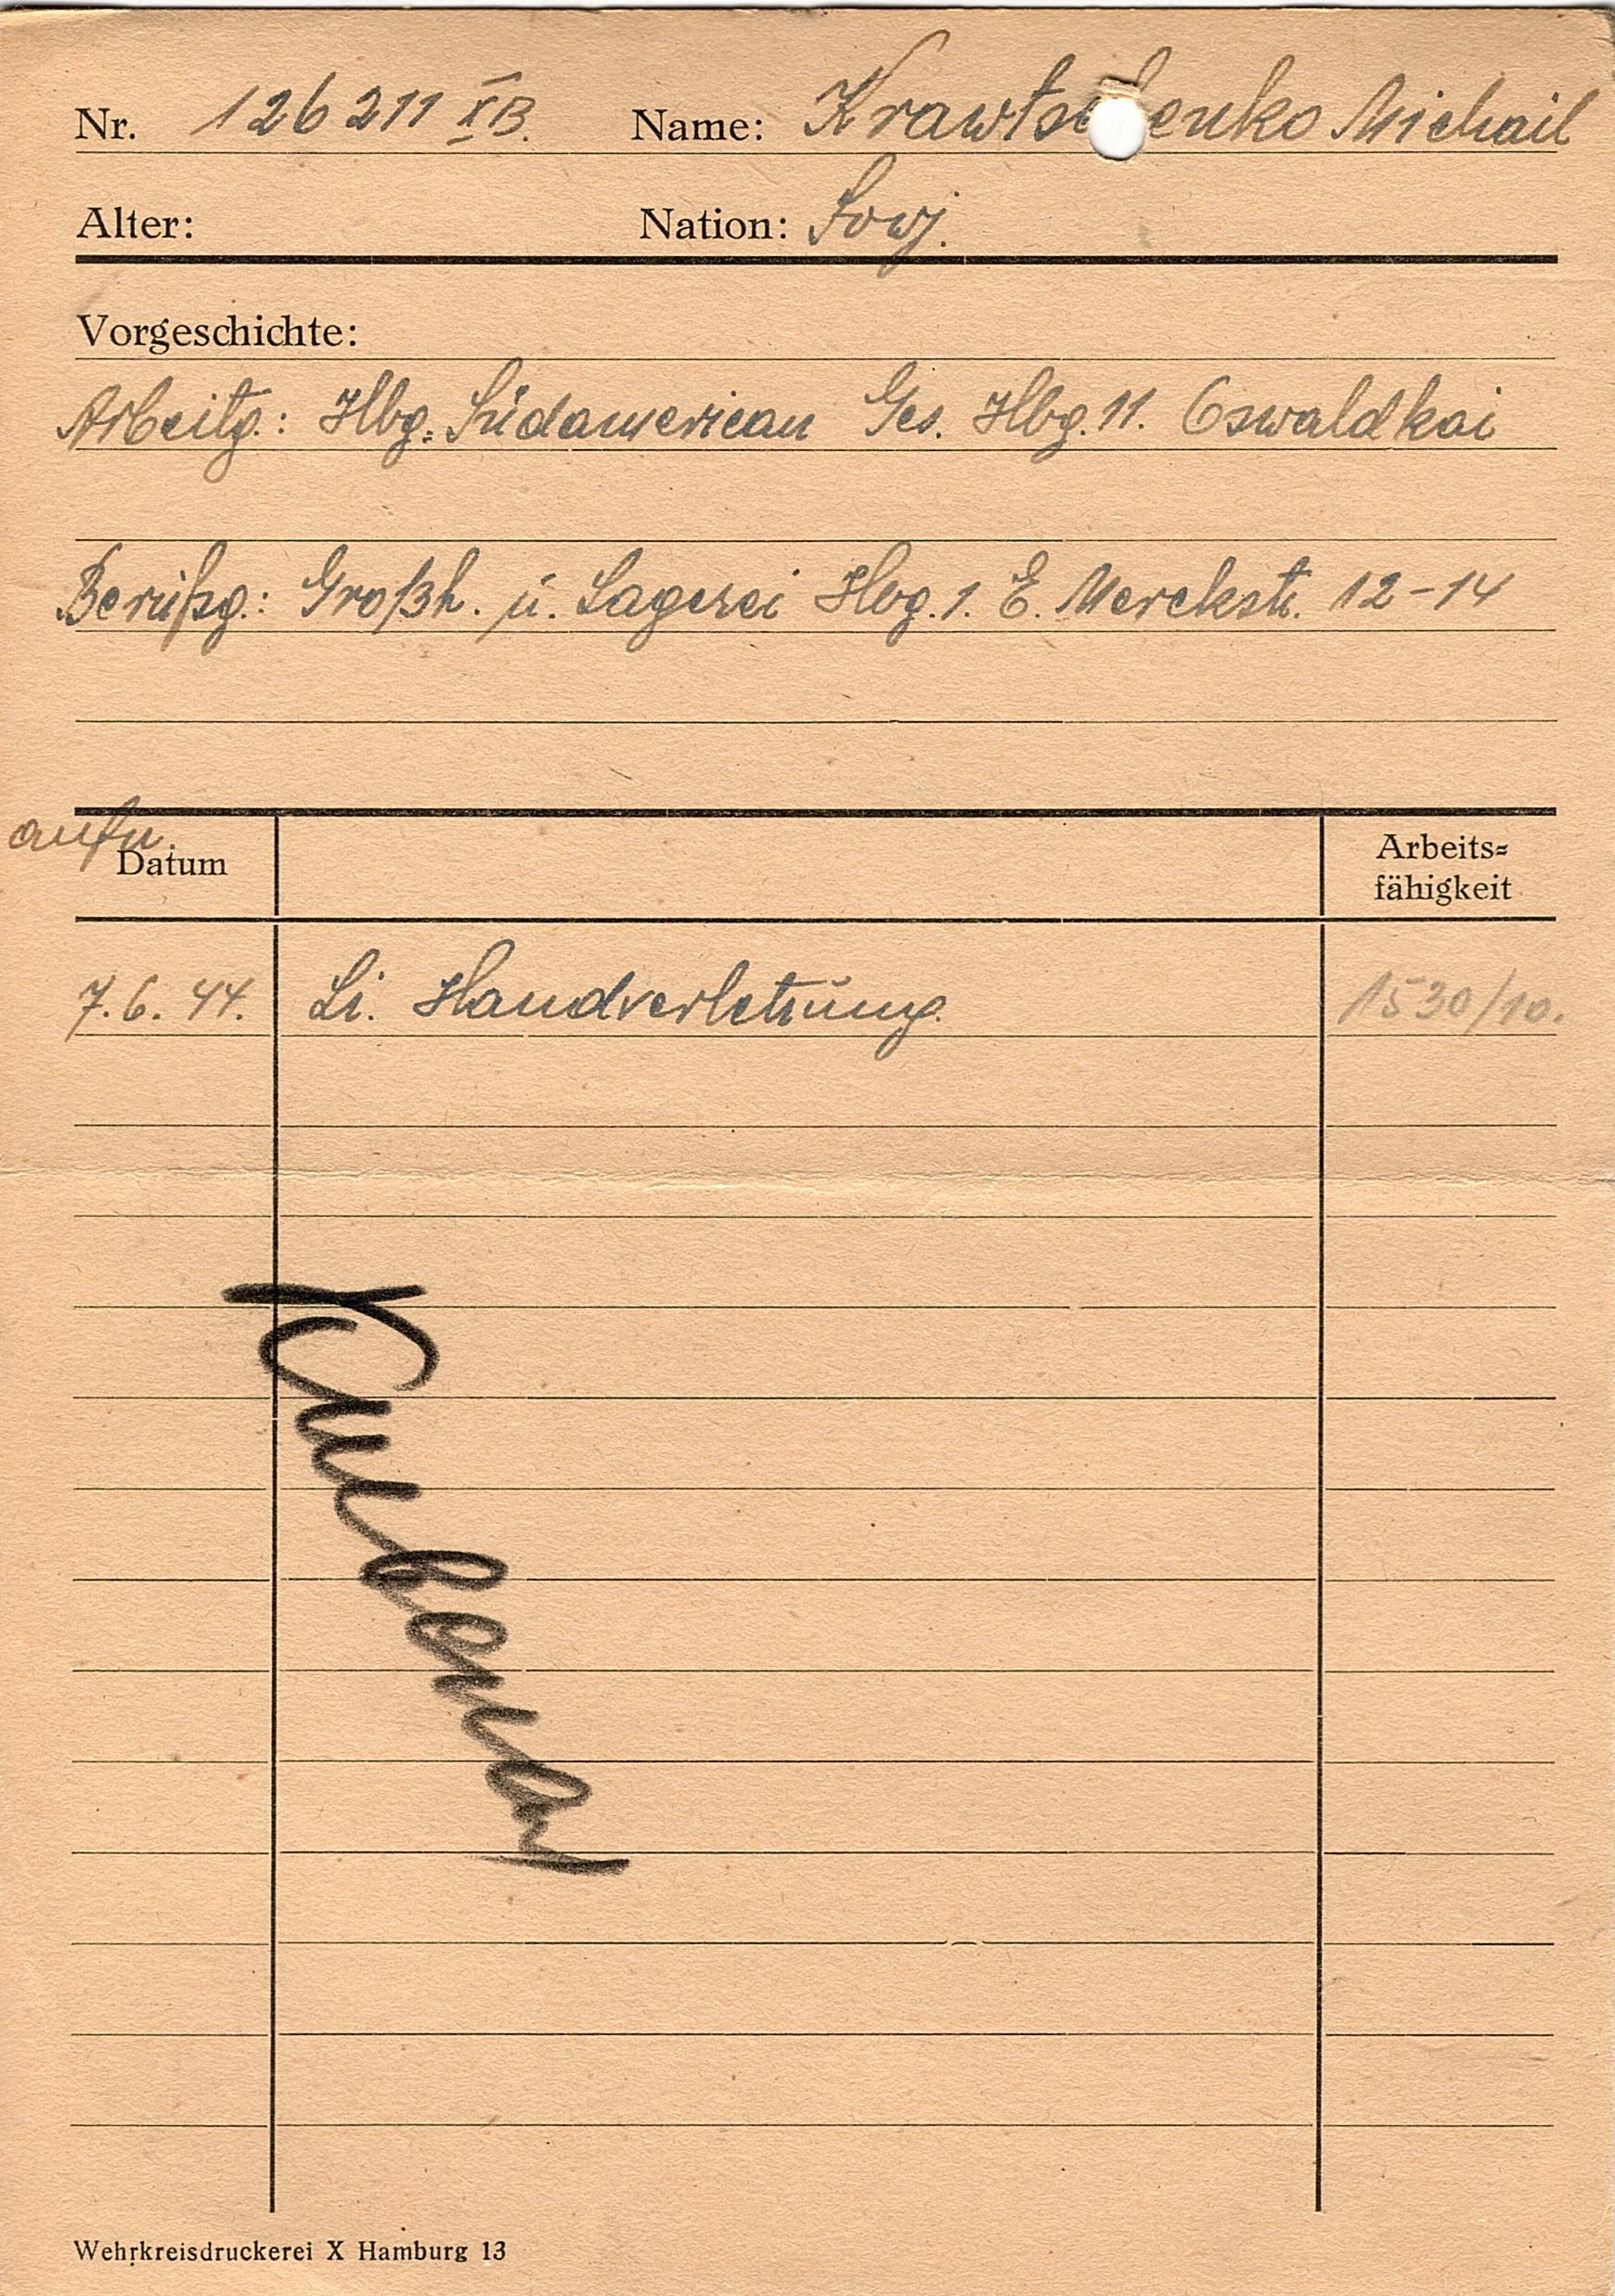 Nr. 126211 XB. Name: Krawtschenko Michail
Alter: Nation: Sowj.
Vorgeschichte:
Arbeitg.: Hbg.=Südamerican Ges. Hbg. 11. Oswaldkai
Berufsg.: Großh. u. Lagerei Hbg. 1. E. Merckstr. 12-14
aufn.
Datum
Arbeits=
fähigkeit
7.6.44. Li. Handverletzung. 1530/10.
Wehrkreisdruckerei X Hamburg 13